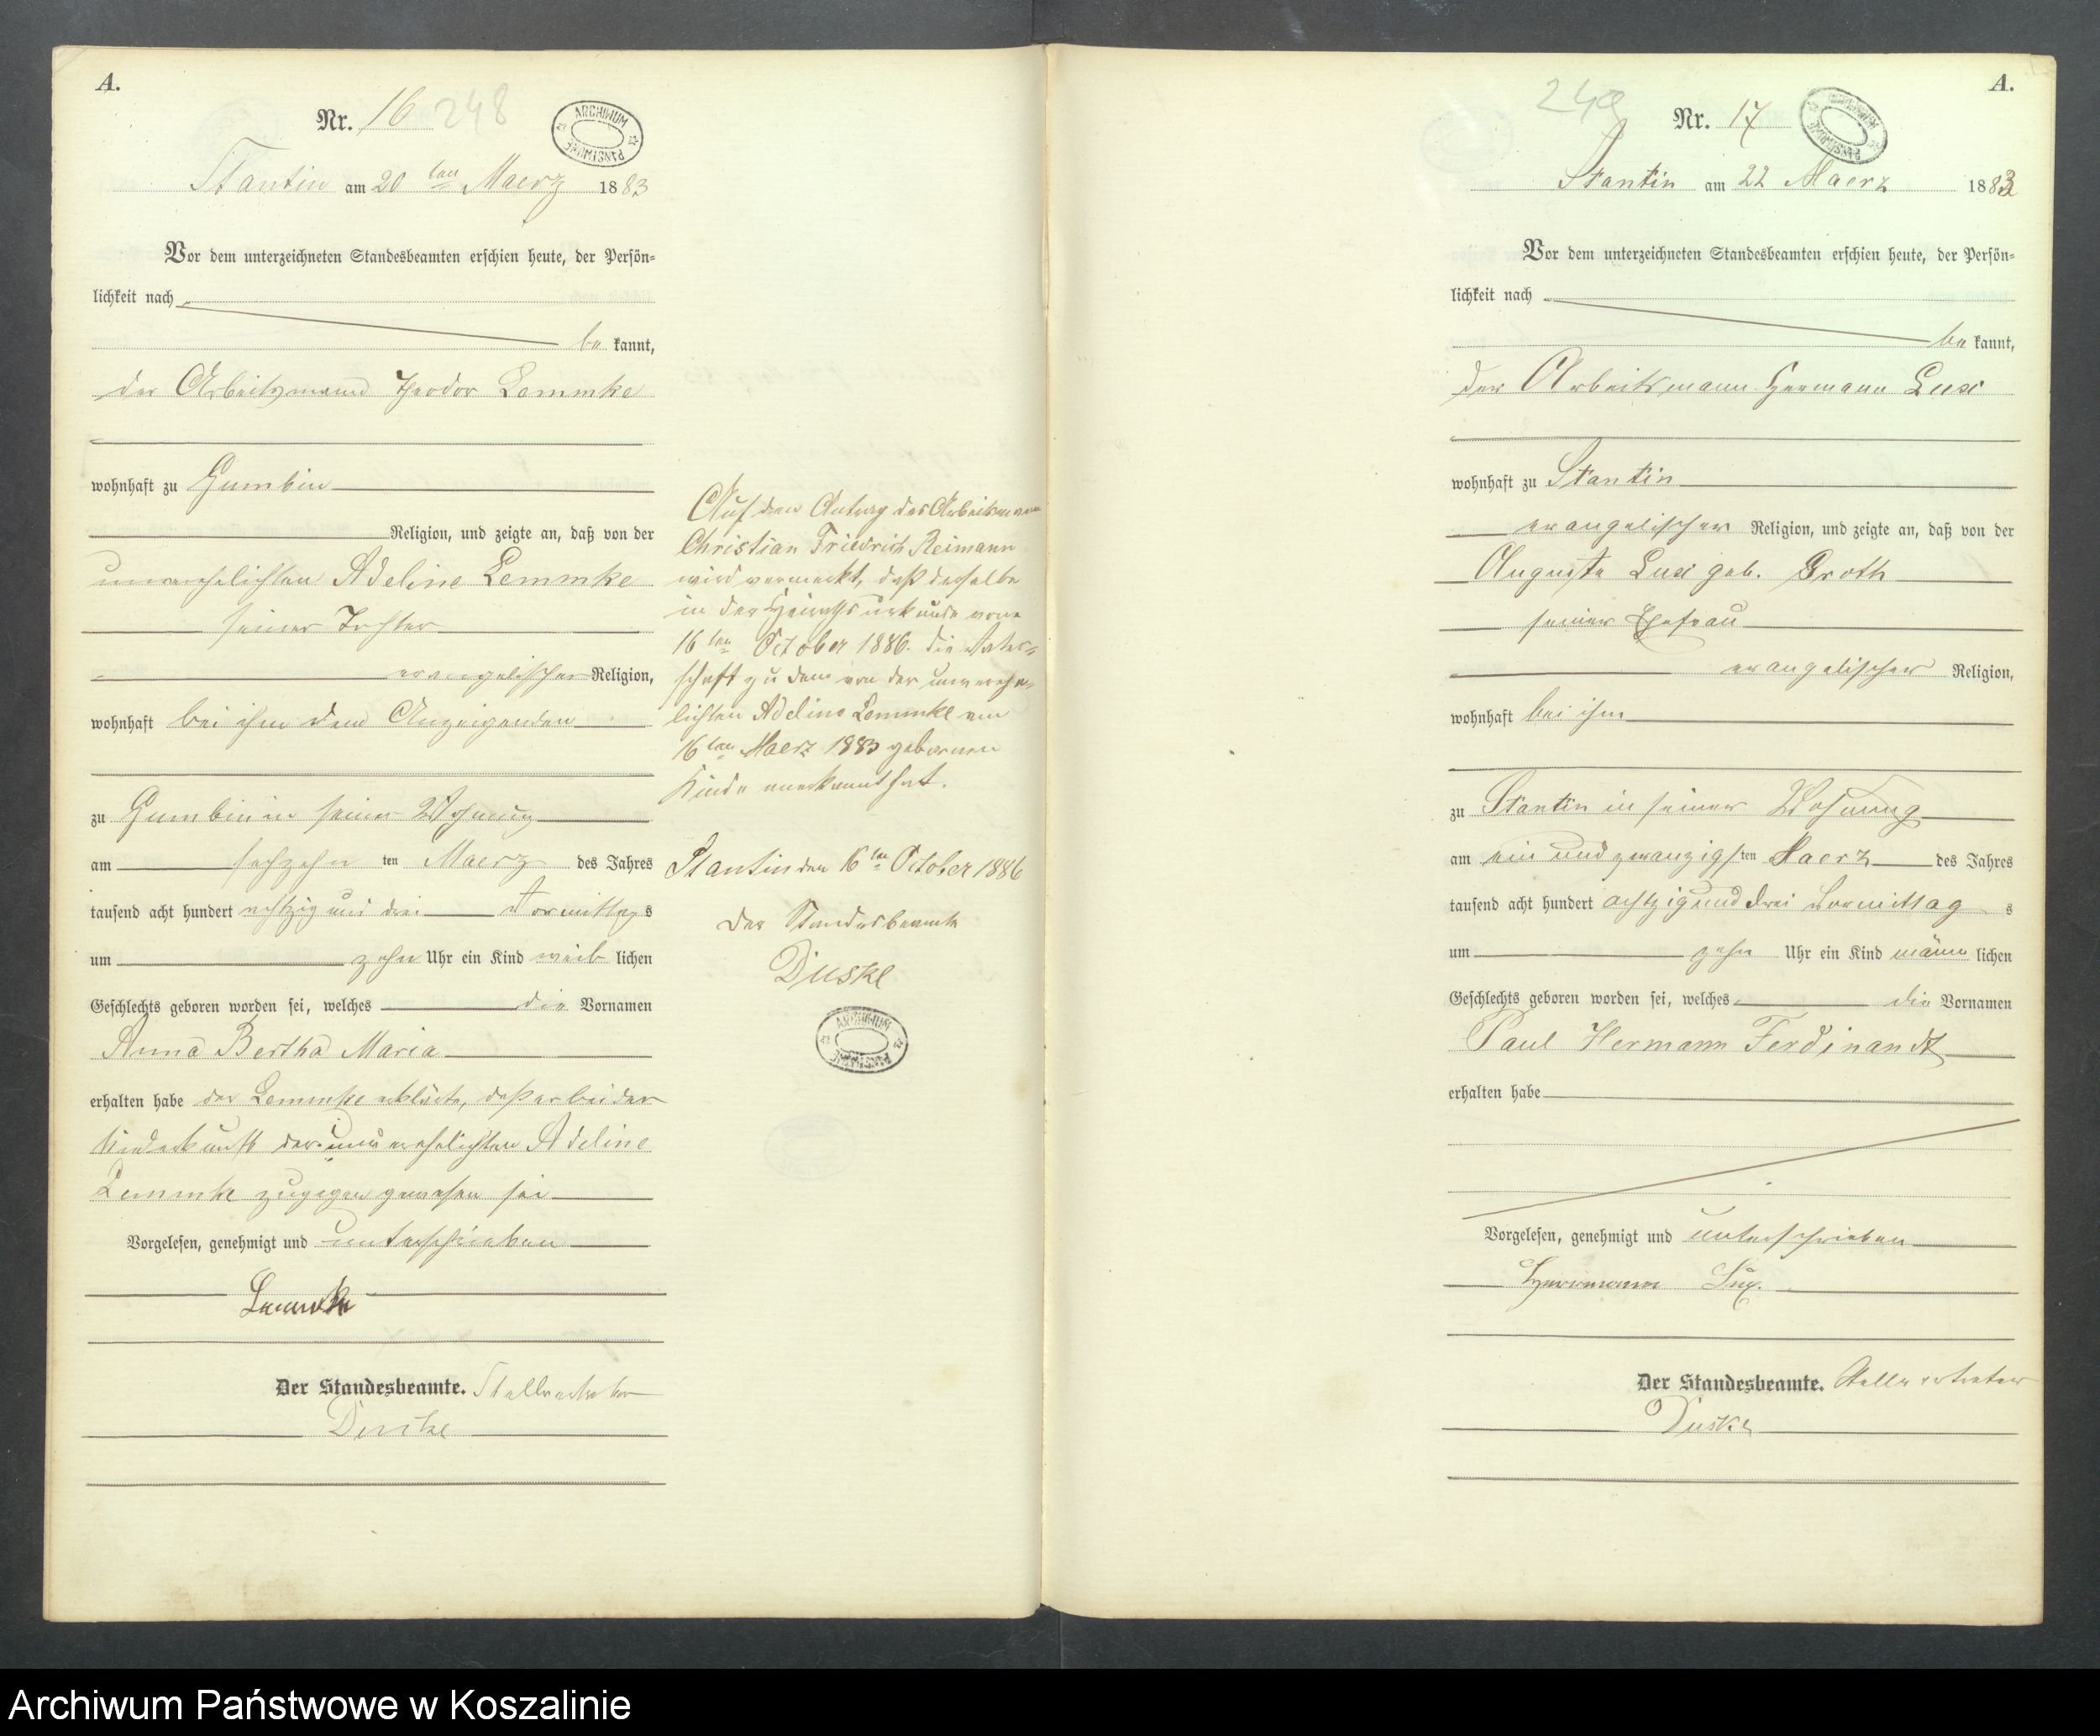 A.
Nr. 16 248
ARCHIWUM PAŃSTWOWE
Stantin am 20 ten Maerz 1883
Vor dem unterzeichneten Standesbeamten erschien heute, der Persön=
lichkeit nach
be kannt,
der Arbeitsmann Theodor Lemmke
wohnhaft zu Gumbin
Religion, und zeigte an, daß von der
unverehelichten Adeline Lemmke
seiner Tochter
evangelischer Religion,
wohnhaft bei ihm dem Anzeigenden
zu Gumbin in seiner Wohnung
am sechzehn ten Maerz des Jahres
tausend acht hundert achtzig und drei Vormittags
um zehn Uhr ein Kind weib lichen
Geschlechts geboren worden sei, welches die Vornamen
Anna Bertha Maria
erhalten habe der Lemmke erklärte, daß er bei der
Niederkunft der unverehelichten Adeline
Lemmke zugegen gewesen sei
Vorgelesen, genehmigt und unterschrieben
Lemmke
Der Standesbeamte. Stellvertreter
Duske
Auf den Antrag des Arbeitsmann
Christian Friedrich Reimann
wird vermerkt, daß derselbe
in der Heirathsurkunde vom
16 ten October 1886. die Vater=
schaft zu dem von der unvereh=
lichten Adeline Lemmke am
16 ten Maerz 1883 geborenen
Kinde anerkannt hat.
Stantin den 16 ten October 1886
Der Standesbeamte
Duske
ARCHIWUM PAŃSTWOWE
A.
249
Nr. 17
ARCHIWUM PAŃSTWOWE
Stantin am 22 Maerz 1883
Vor dem unterzeichneten Standesbeamten erschien heute, der Persön=
lichkeit nach
be kannt,
der Arbeitsmann Hermann Lux
wohnhaft zu Stantin
evangelischer Religion, und zeigte an, daß von der
Auguste Lux geb. Groth
seiner Ehefrau
evangelischer Religion,
wohnhaft bei ihm
zu Stantin in seiner Wohnung
am ein und zwanzigsten Maerz des Jahres
tausend acht hundert achtzig und drei Vormittag s
um zehn Uhr ein Kind männ lichen
Geschlechts geboren worden sei, welches die Vornamen
Paul Hermann Ferdinandt
erhalten habe
Vorgelesen, genehmigt und unterschrieben
Herrmann Lux.
Der Standesbeamte. Stellvertreter
Duske
Archiwum Państwowe w Koszalinie